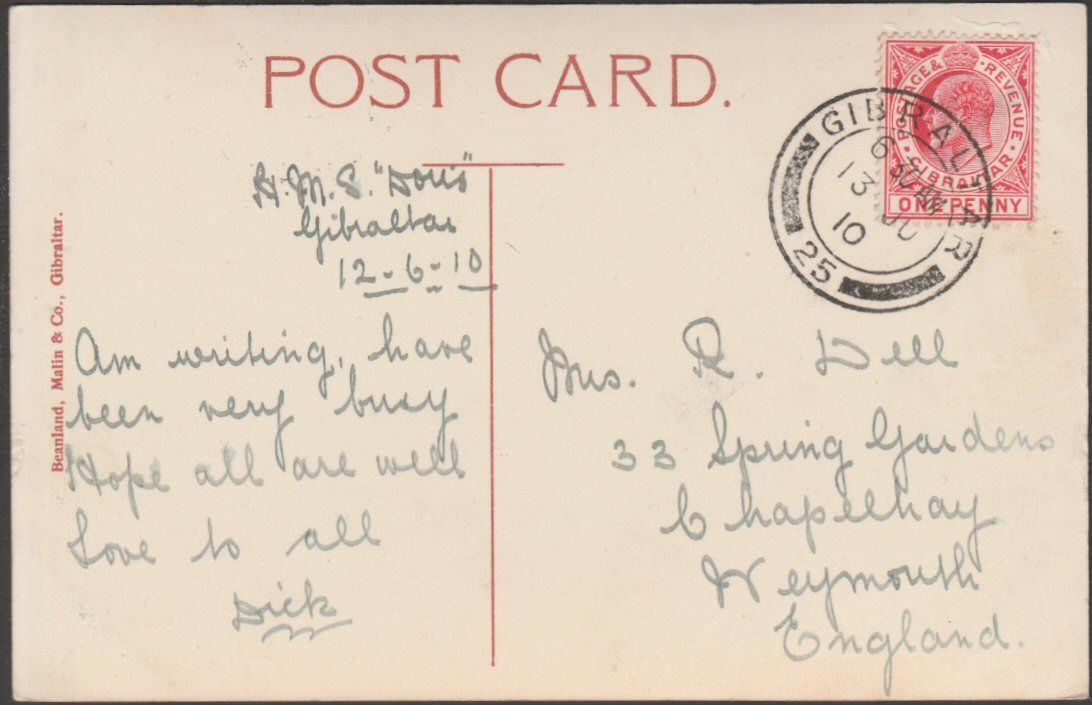 POST CARD.
H.M.S. "Doris"
Gibraltar
12-6-10
Am writing, have
been very busy
Hope all are well
Love to all
Dick
Beanland, Malin & Co., Gibraltar.
POSTAGE & REVENUE
GIBRALTAR
ONE PENNY
GIBRALTAR
6 30 AM
13 JU
10
25
Mrs. R. Dell
33 Spring Gardens
Chapelhay
Weymouth
England.